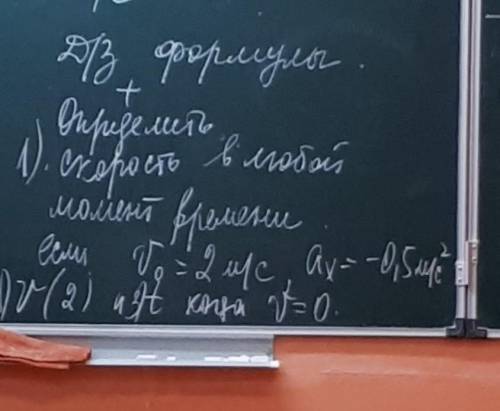 Д/З формулы.
+
Определить
1). скорость в любой
момент времени.
если v₀ = 2 м/с aₓ = -0,5 м/с²
) v(2) и t когда v = 0.